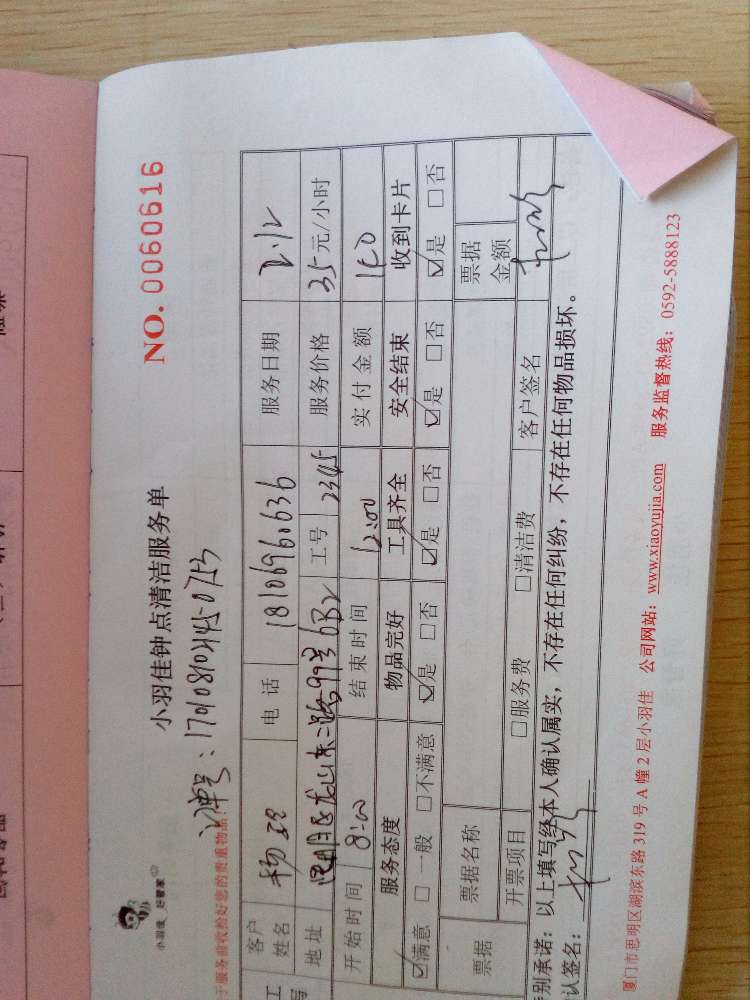 小羽佳 好管家
小羽佳钟点清洁服务单
NO. 0060616
于服务前收拾好您的贵重物品
客户姓名 电话 18106960636 服务日期 2.12
地址 思明区龙山东二路99号 工号 2345 服务价格 35元/小时
开始时间 8:00 结束时间 12:00 实付金额 140
服务态度 物品完好 工具齐全 安全结束 收到卡片
☑满意 □一般 □不满意 ☑是 □否 ☑是 □否 ☑是 □否 ☑是 □否
票据 票据名称 票据金额
开票项目 □服务费 □清洁费 客户签名
别承诺:以上填写经本人确认属实,不存在任何纠纷,不存在任何物品损坏。
认签名:
厦门市思明区湖滨东路 319 号 A 幢 2 层小羽佳 公司网站:www.xiaoyujia.com 服务监督热线:0592-5888123